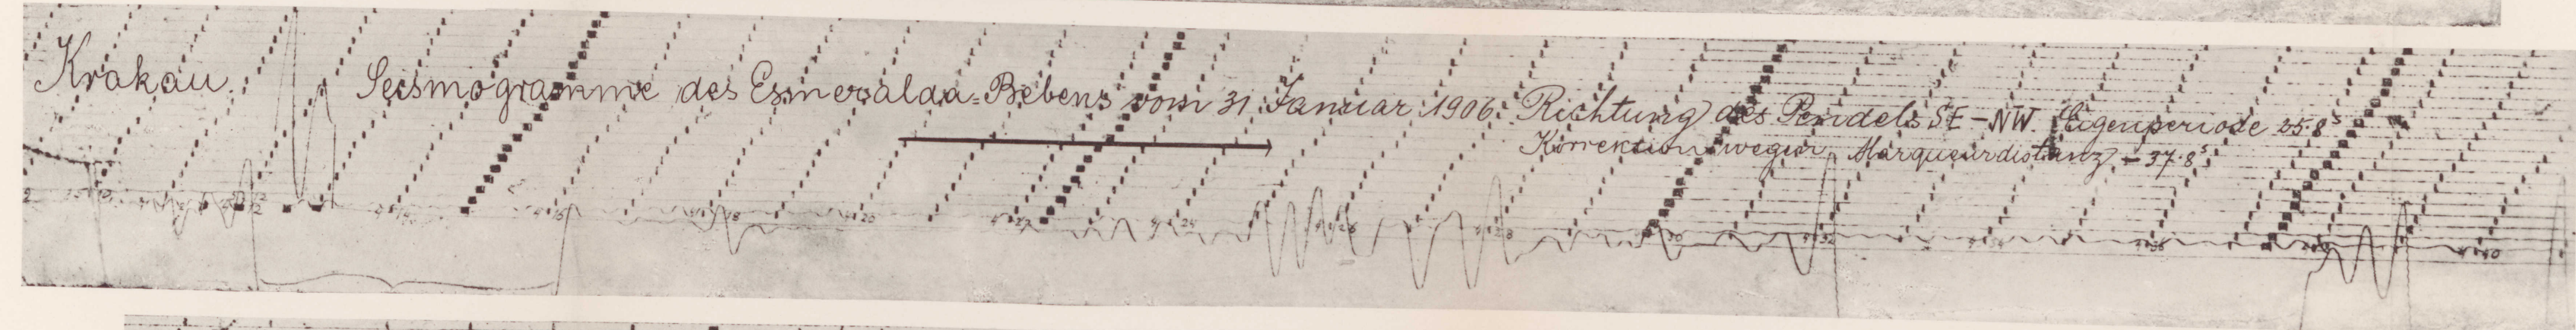 Krakau. Seismogramme des Esmeralda-Bebens vom 31. Januar 1906. Richtung des Pendels SE-NW. Eigenperiode 25.8s
Korrektion wegen Marqueurdistanz - 37.8s